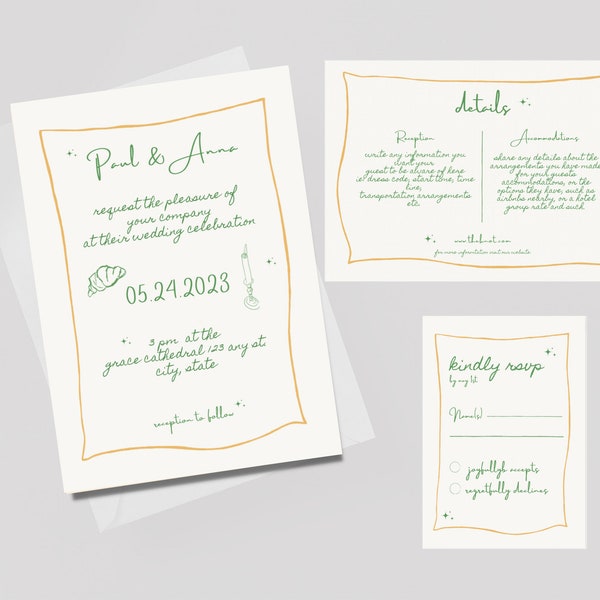 Paul & Anna
request the pleasure of
your company
at their wedding celebration
05.24.2023
3 pm at the
grace cathedral 123 any st.
city, state
reception to follow
details
Reception
write any information you
want your
guest to be alware of here
ie: dress code, start time, time
line,
transportation arrangements
etc.
Accomodations
share any details about the
arrangements you have made
for your guests
accommodations, or the
options they have, such as
airbnbs nearby, or a hotel
group rate and such.
www.theknot.com
for more information visit our website
kindly rsvp
by aug 1st
Name(s)
joyfullyb accepts
regretfully declines